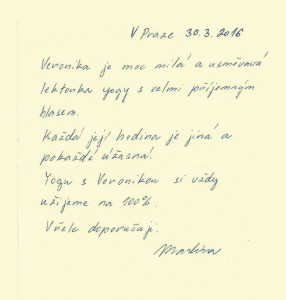 V Praze 30.3.2016
Veronika je moc milá a usměvavá
lektorka yogy s velmi příjemným
hlasem.
Každá její hodina je jiná a
pokaždé úžasná!
Yogu s Veronikou si vždy
užijeme na 100%.
Vřele doporučuji.
Martina